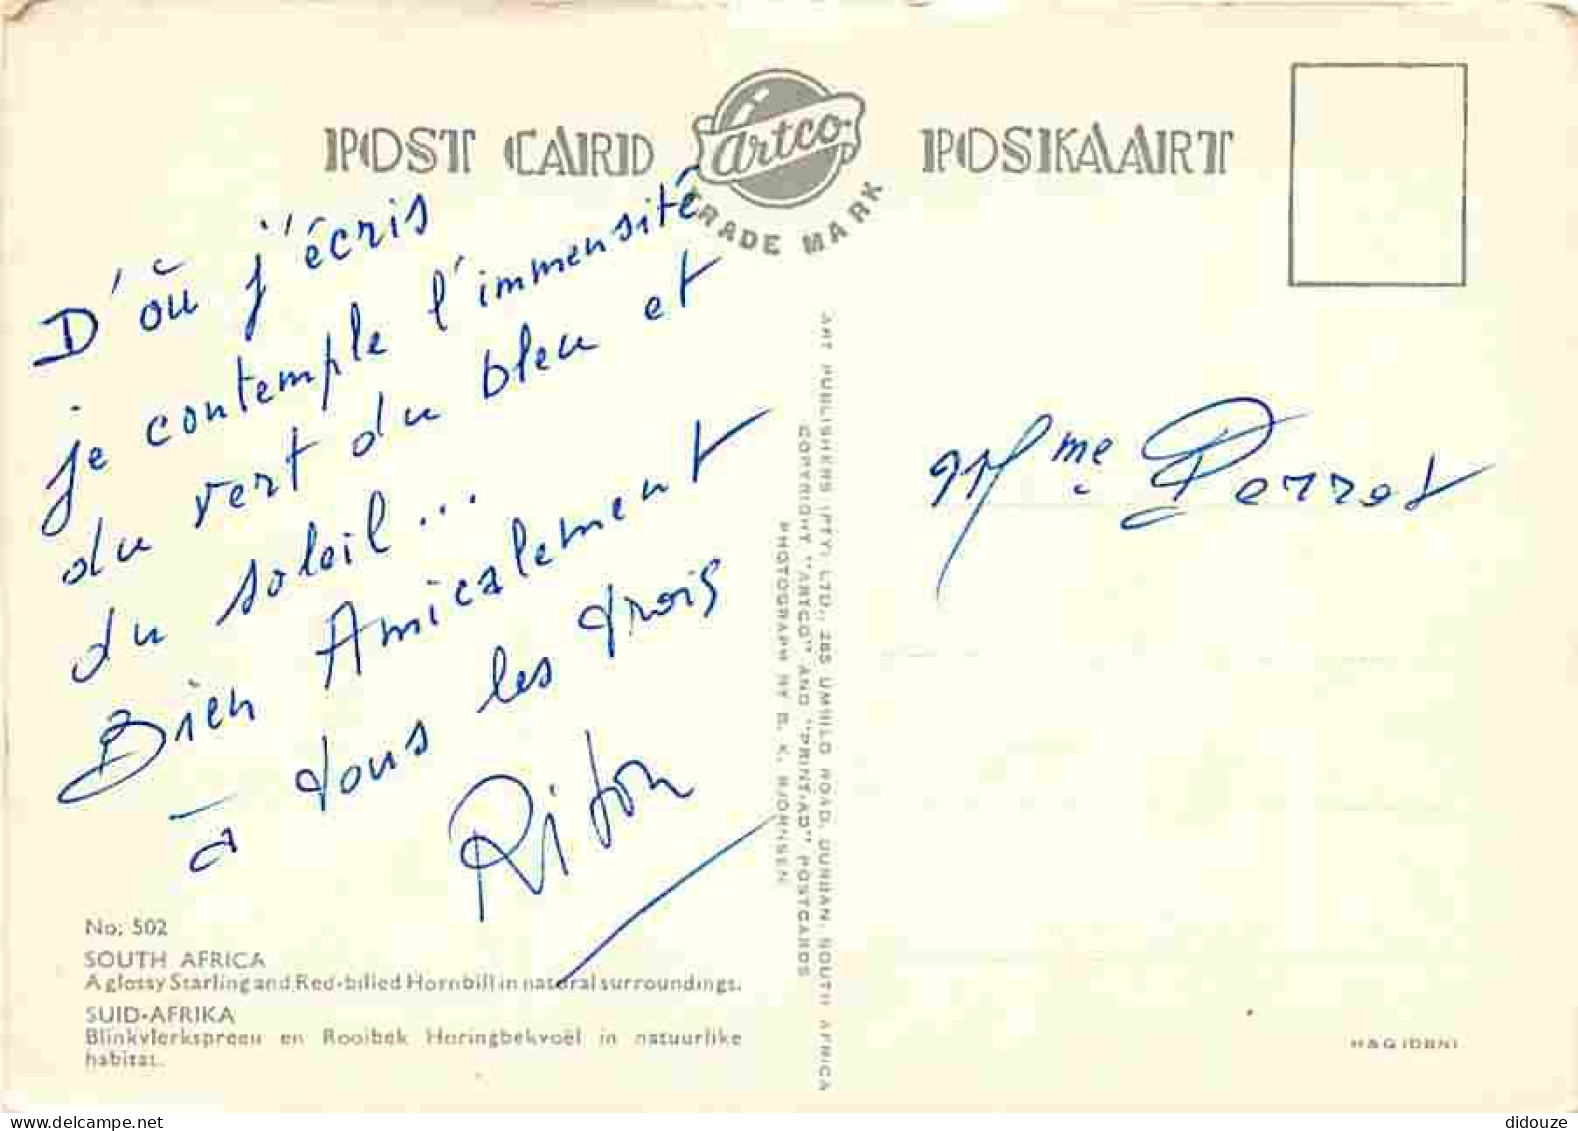 POST CARD
artco
TRADE MARK
POSKAART
D'où j'écris
je contemple l'immensité
du vert du bleu et
du soleil...
Bien Amicalement
à tous les trois
Riton
Mme Perrot
ART PUBLISHERS (PTY) LTD., 285 UMBILO ROAD, DURBAN, SOUTH AFRICA
COPYRIGHT "ARTCO" AND "PRINT-AD" POSTCARDS
PHOTOGRAPH BY D. K. BJORNSEN
No: 502
SOUTH AFRICA
A glossy Starling and Red-billed Hornbill in natural surroundings.
SUID-AFRIKA
Blinkvlerkspreeu en Rooibek Horingbekvoël in natuurlike
habitat.
H&G (DBN)
delcampe.net
didouze